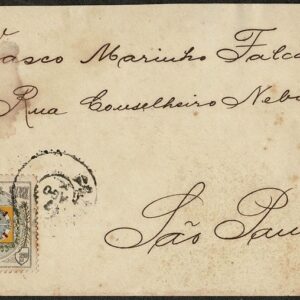 asco Marinho Falc
Rua Conselheiro Neb
São Pau